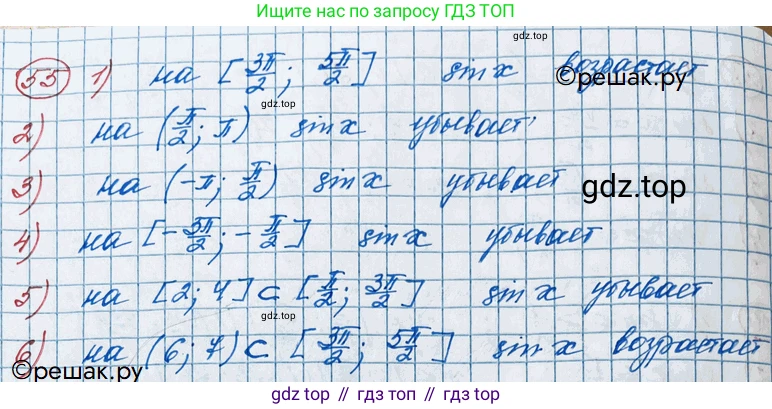 Ищите нас по запросу ГДЗ ТОП
55 1) на [3π/2; 5π/2] sin x возрастает
©решак.ру
gdz.top
2) на (π/2; π) sin x убывает
3) на (-π; π/2) sin x убывает
gdz.top
4) на [-3π/2; -π/2] sin x убывает
5) на [2; 4] ⊂ [π/2; 3π/2] sin x убывает
gdz.top
6) на (6; 7) ⊂ [3π/2; 5π/2] sin x возрастает
©решак.ру
gdz.top // гдз топ // gdz.top // гдз топ